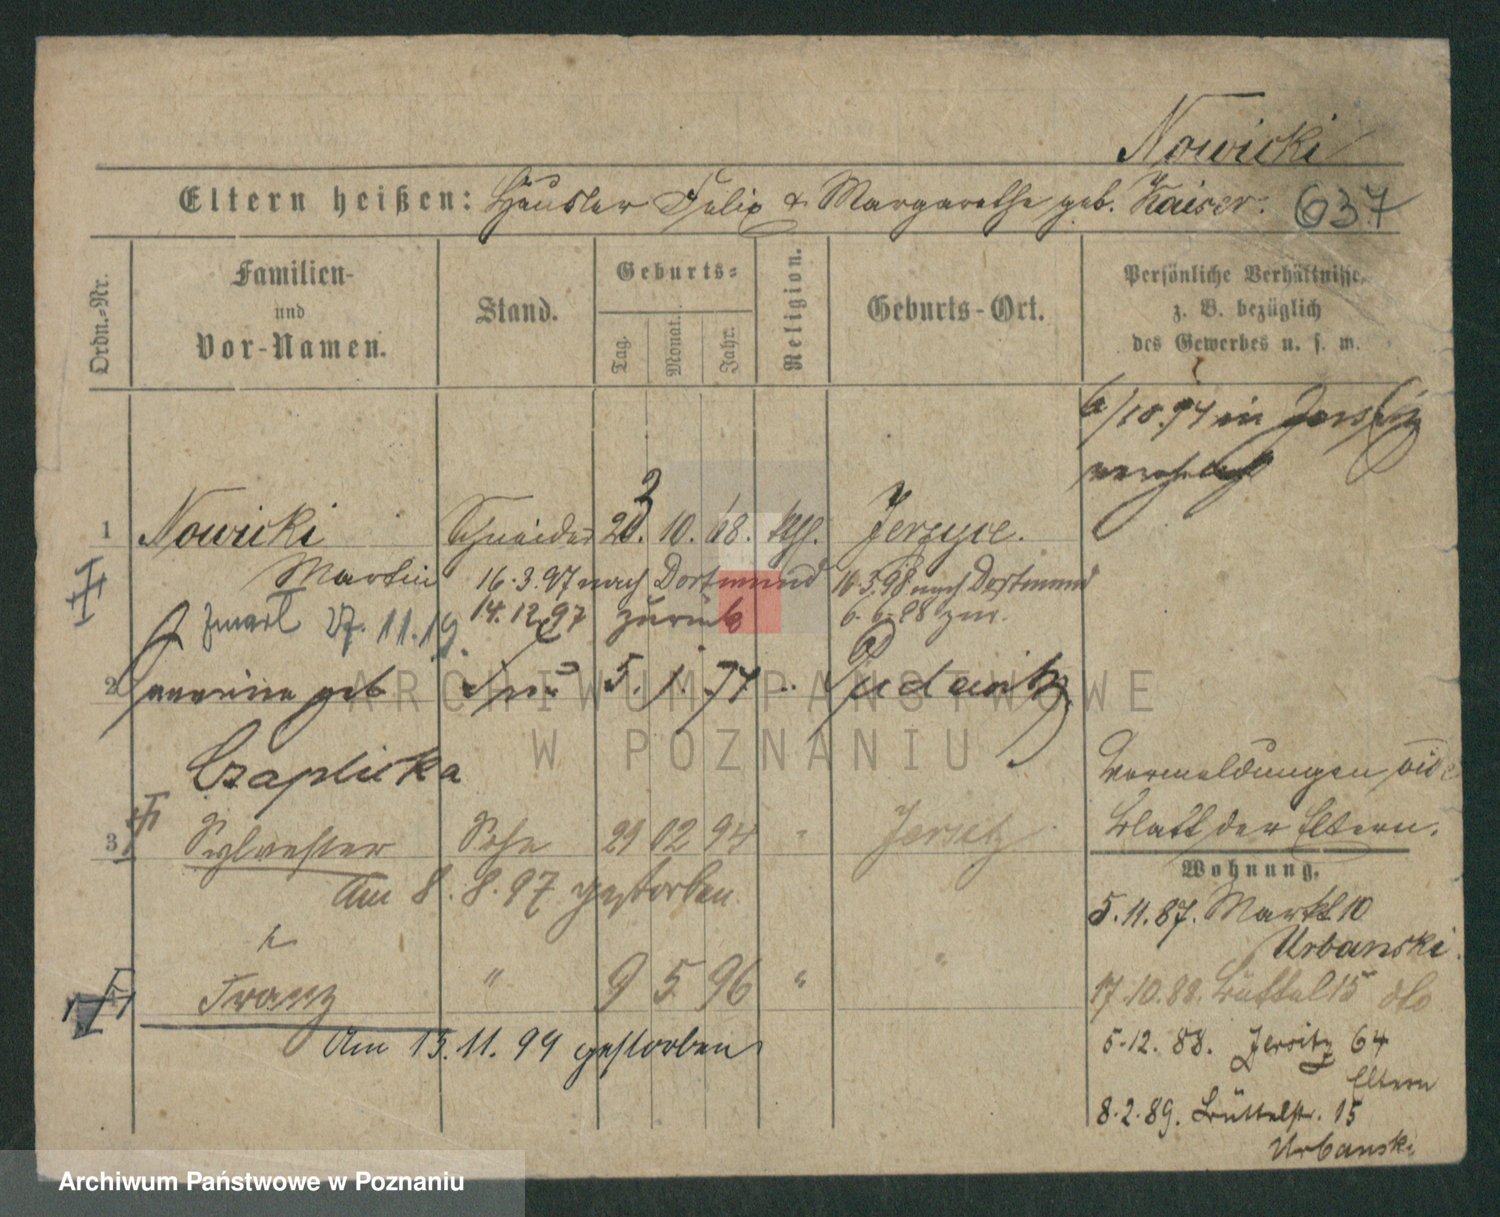 Nowicki
Eltern heißen: Häusler Felix & Margarethe geb. Kaiser. 637
Ordn.-Nr.
Familien-
und
Vor-Namen.
Stand.
Geburts-
Tag.
Monat.
Jahr.
Religion.
Geburts-Ort.
Persönliche Verhältnisse,
z. B. bezüglich
des Gewerbes u. s. w.
6/10.94 in Jersitz
verehelicht
1 Nowicki Schneider 23. 10. 68. kth. Jerzyce.
Martin 16.3.97 nach Dortmund 16.3.98 nach Dortmund
14.12.97 zurück 6.6.98 zur.
27.11.19.
2 geb. Frau 5. 1. 71 " Pudewitz
Czaplicka
Vormeldungen vide
Blatt der Eltern.
3 Sylvester Sohn 29 12 94 " Jersitz
Am 8.8.97 gestorben
Wohnung.
5.11.87. Markt 10
Urbanski.
Franz " 9 5 96 " "
17.10.88. Büttel 15 dto
Am 13.11.99 gestorben
5.12.88. Jersitz 64
Eltern
8.2.89. Büttelstr. 15
Urbanski
ARCHIWUM PAŃSTWOWE
W POZNANIU
Archiwum Państwowe w Poznaniu